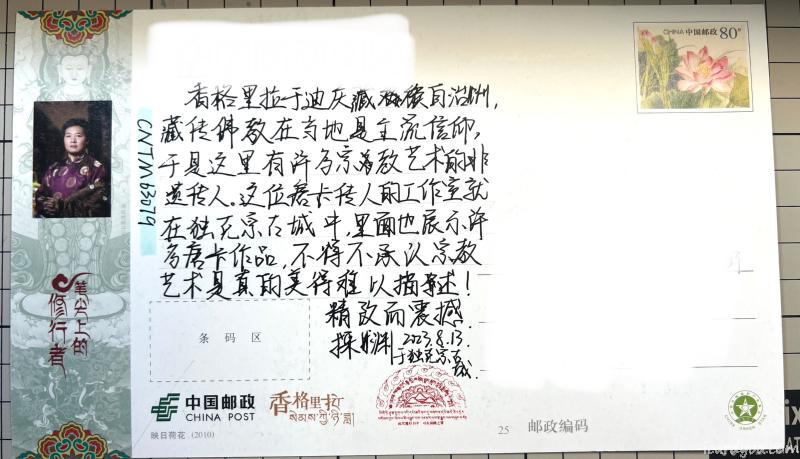 CHINA 中国邮政 80分
CNTM63079
香格里拉于迪庆藏族自治州,
藏传佛教在当地是主流信仰,
于是这里有许多宗教艺术的非
遗传人。这位唐卡传人的工作室就
在独克宗古城中,里面也展示许
多唐卡作品,不得不承认宗教
艺术是真的美得难以描述!
精致而震撼.
探渊 2023.8.13.
于独克宗古城.
笔尖上的
修行者
条码区
中国邮政
CHINA POST
香格里拉
映日荷花 (2010)
25
邮政编码